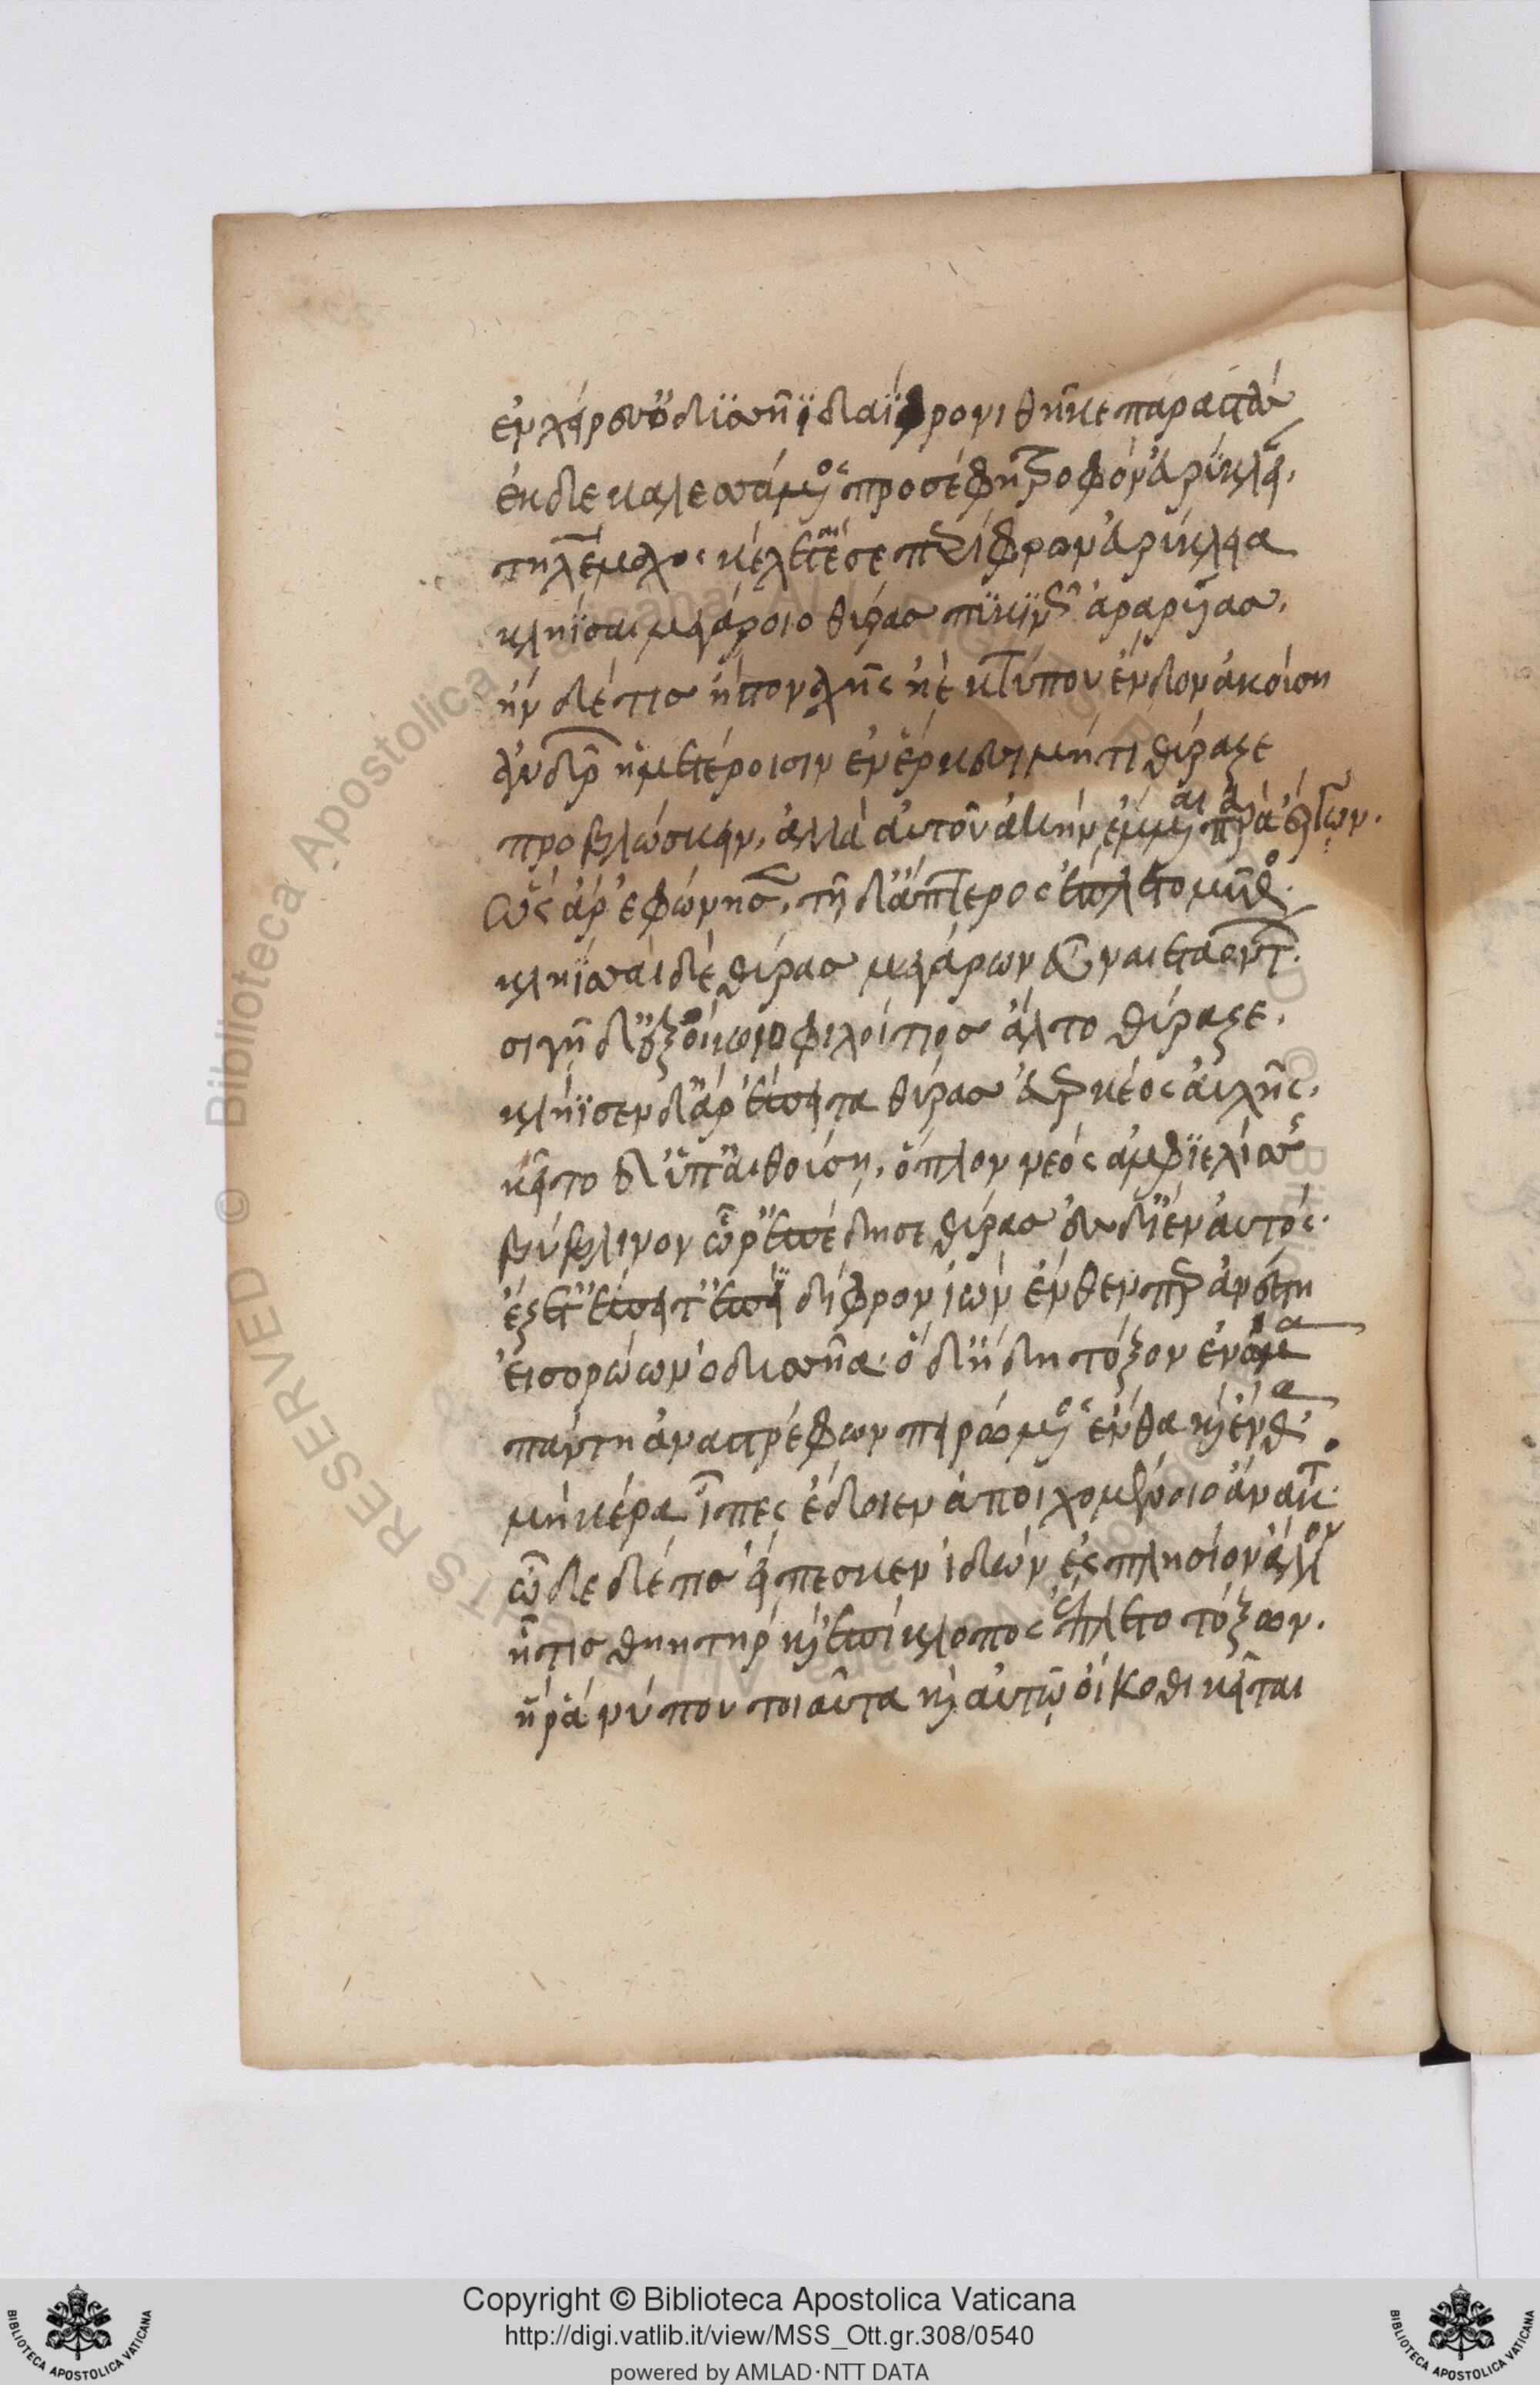 ἐν χείρεσσ' ὀδυσσῆϊ δαΐφρονι θῆκε παραστάς
ἐκ δὲ καλεσσάμενος προσέφη τροφὸν εὐρύκλειαν.
τηλέμαχος κέλεταί σε περίφρων εὐρύκλεια
κληῖσαι μεγάροιο θύρας πυκινῶς ἀραρυίας.
ἢν δέ τις ἢ στοναχῆς ἠὲ κτύπου ἔνδον ἀκούσῃ
ἀνδρῶν ἡμετέροισιν ἐν ἕρκεσι μή τι θύραζε
προβλώσκειν. ἀλλ' αὐτοῦ ἀκὴν ἔμμεναι παρὰ ἔργων.
ὣς ἄρ' ἐφώνησεν. τῇ δ' ἄπτερος ἔπλετο μῦθος.
κλήϊσσαι δὲ θύρας μεγάρων εὐναιεταόντων.
σιγῇ δ' ἐξ οἴκοιο φιλοίτιος ἆλτο θύραζε.
κλήϊσεν δ' ἄρ' ἔπειτα θύρας εὐερκέος αὐλῆς.
κεῖτο δ' ὑπ' αἰθούσῃ. ὅπλον νεὸς ἀμφιελίσσης
βύβλινον ὧρ' ἐπέδησε θύρας ἐς δ' ἤϊεν αὐτός.
ἕζετ' ἔπειτ' ἐπὶ δίφρον ἰὼν ἔνθεν περ ἀνέστη
εἰσορόων ὀδυσσῆα. ὁ δ' ἤδη τόξον ἐνώμα
πάντη ἀναστρέφων πειρώμενος ἔνθα καὶ ἔνθα.
μὴ κέρα ἶπες ἔδοιεν ἀποιχομένοιο ἄνακτος.
ὧδε δέ τις εἴπεσκεν ἰδὼν ἐς πλησίον ἄλλον
ἦ τις θηητὴρ καὶ ἐπίκλοπος ἔπλετο τόξων.
ἤ ῥά νύ που τοιαῦτα καὶ αὐτῷ οἴκοθι κεῖται
Copyright © Biblioteca Apostolica Vaticana
http://digi.vatlib.it/view/MSS_Ott.gr.308/0540
powered by AMLAD·NTT DATA